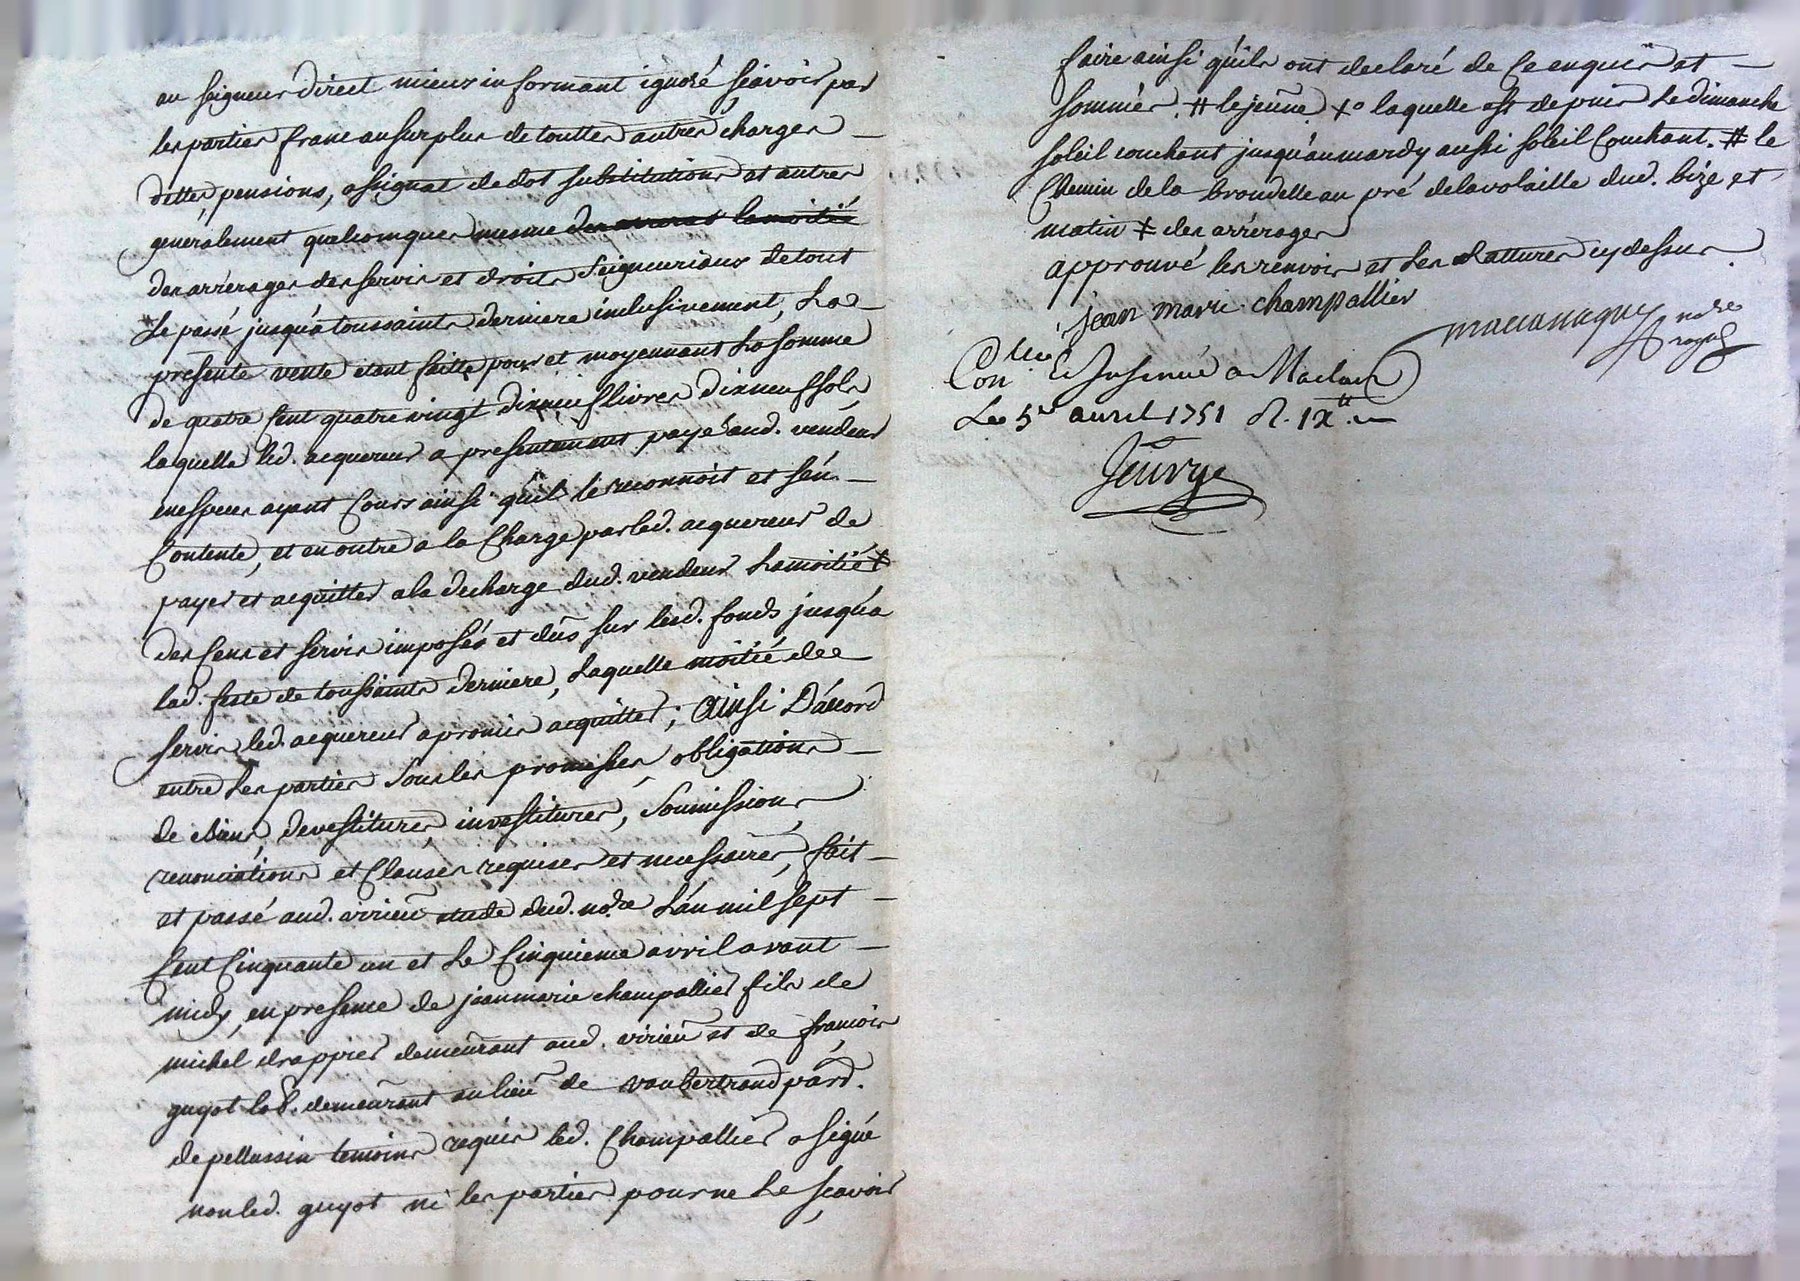 au seigneur direct mieux informant ignoré scavoir par
les parties franc au surplus de touttes autres charges
dettes, pensions, assignat de dot substitutions et autres
generalement quelconques mesme des
des arrérages des servis et droits seigneuriaux de tout
le passé jusqu'a toussaints derniere inclusivement, La
presente vente etant faitte pour et moyennant La somme
de quatre cent quatre vingt dixneuf livres dixneuf sols
laquelle led. acquereur a presentement payé aud. vendeur
en especes ayant Cours ainsi qu'il le reconnoit et s'en
Contente, et en outre a la Charge par led. acquereur de
payer et acquitter a la decharge dud. vendeur La moitié ǂ
des Cens et servis imposés et dus sur lesd. fonds jusqu'a
lad. feste de toussaints derniere, Laquelle moitié de
servis led. acquereur a promis acquitter; ainsi D'accord
entre Les parties sous les promesses, obligations
de biens, devestitures, investitures, soumissions,
renonciations et Clauses requises et necessaires, fait
et passé aud. virieu etude dud. no.re L'an mil sept
Cent Cinquante un et Le Cinquieme avril avant
midy, en presence de jean marie champallier fils de
michel drappier demeurant aud. virieu et de françois
guyot lab. demeurant au lieu de vaubertrand par.
de pellussin temoins requis led. Champallier a signé
non led. guyot ni les parties pour ne Le scavoir
faire ainsi qu'ils ont declaré de Ce enquis et
sommés. # le jeune. +o laquelle est depuis Le dimanche
soleil couchant jusqu'au mardy aussi soleil Couchant. # le
Chemin de la broudelle au pré de la volaille dud. bize et
matin ǂ des arrérages
approuvé les renvois et Les Rattures cy dessus.
jean marie champallier
no.re royal
Con.lé Et Insinué a Maclas
Le 5e avril 1751 R.